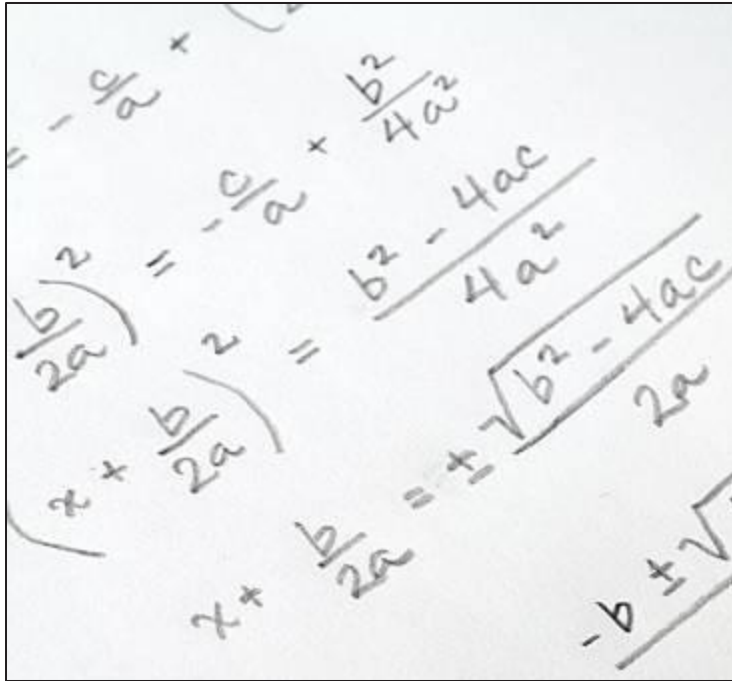 = - c/a + (
b/2a)² = - c/a + b²/4a²
(x + b/2a)² = b² - 4ac/4a²
x + b/2a = ± √b² - 4ac/2a
-b ± √